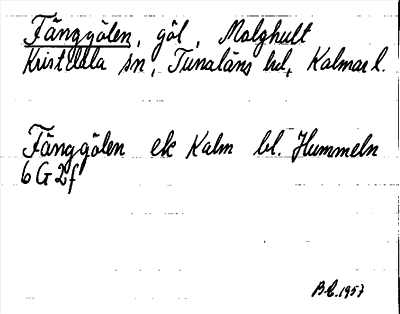 Fänggölen, göl, Malghult
Kristdala sn, Tunaläns hd, Kalmar l.
Fänggölen ek Kalm bl. Hummeln
6 G 2f
B.E. 1957